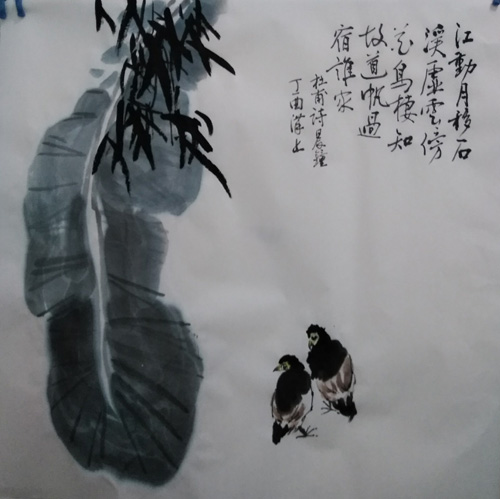 江動月移石
溪虛雲傍
花鳥棲知
故道帆過
宿誰家
杜甫詩晨鐘
丁酉漢上